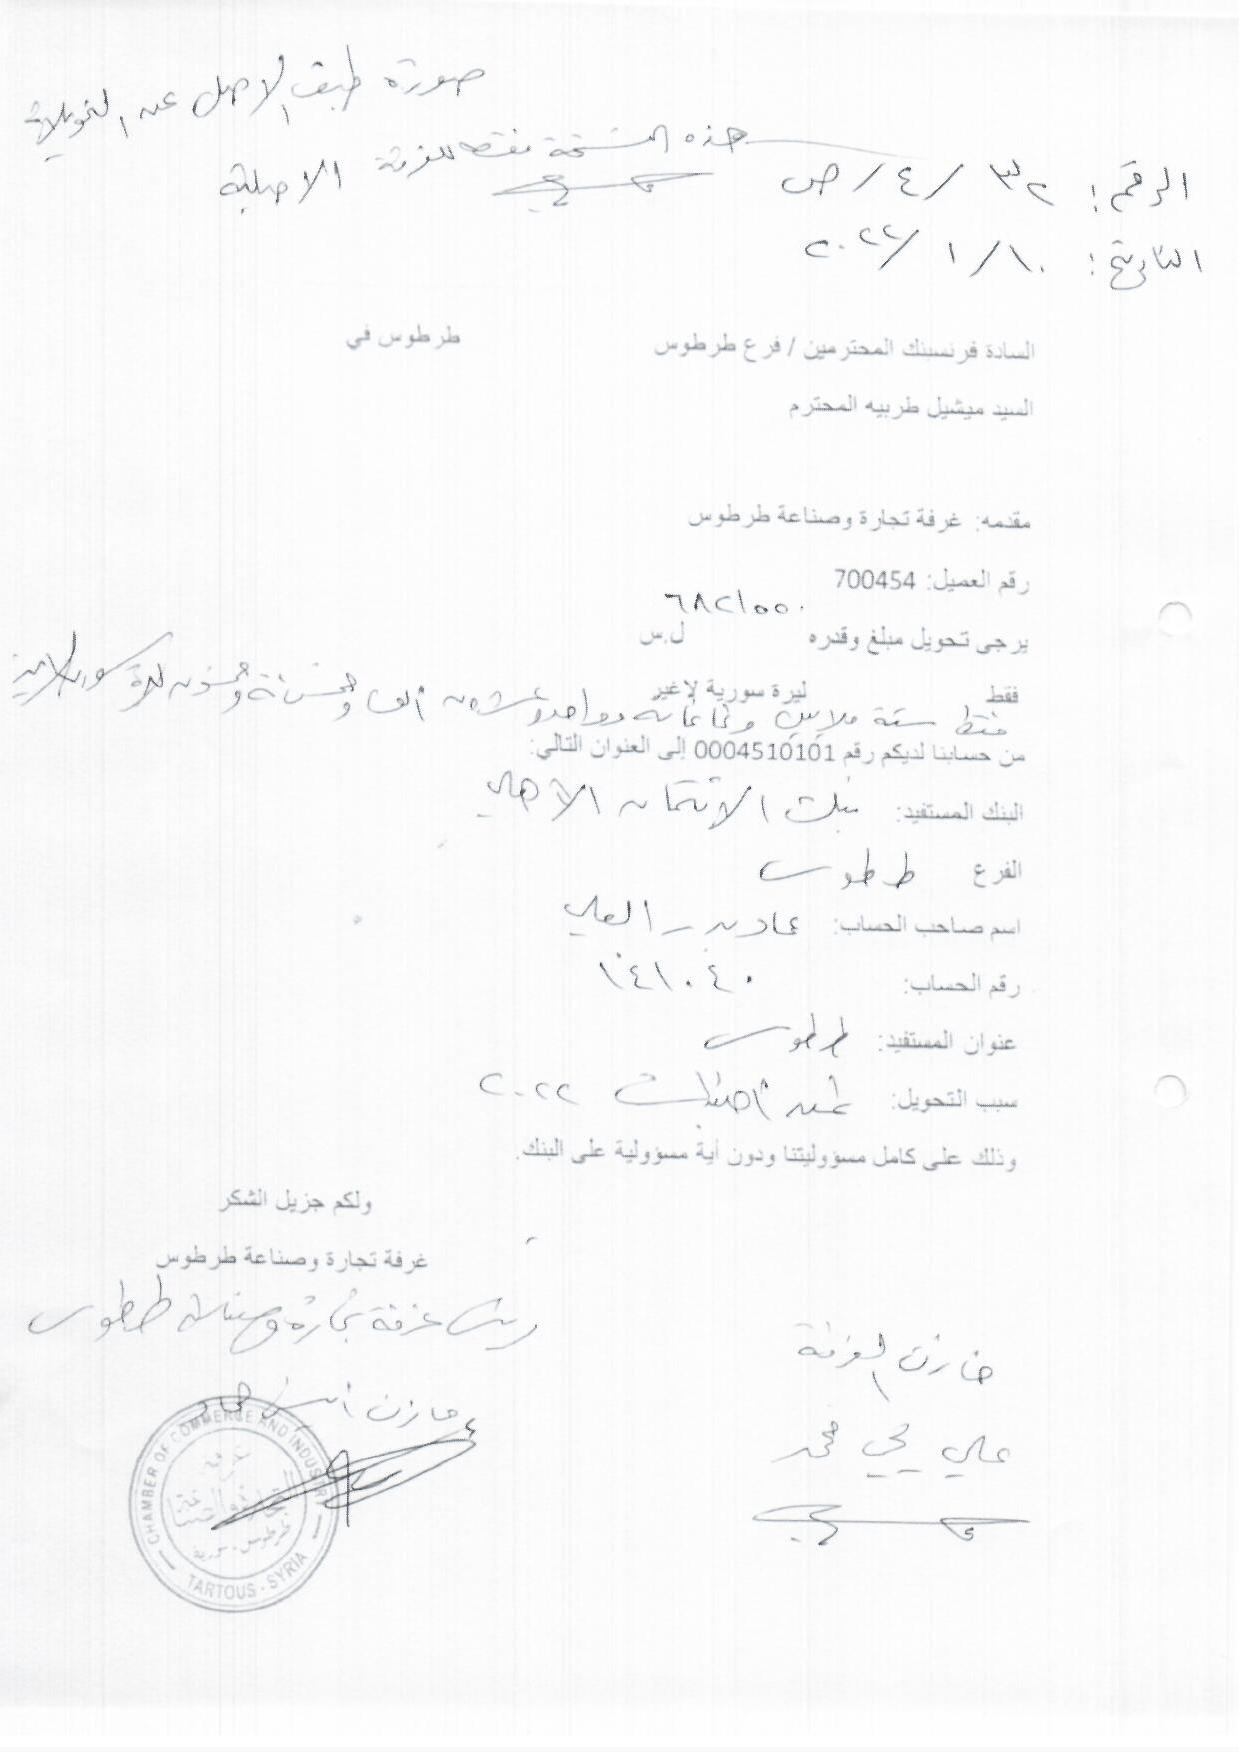 صورة طبق الاصل عن التحويلات
هذه النسخة فقط للغرفة الاصلية
الرقم: ٣٢ / ٤ / ص
التاريخ: ١٠ / ١ / ٢٠٢٢
السادة فرنسبنك المحترمين / فرع طرطوس
طرطوس في
السيد ميشيل طربيه المحترم
مقدمه: غرفة تجارة وصناعة طرطوس
رقم العميل: 700454
يرجى تحويل مبلغ وقدره ٦٨٢١٥٥٠ ل.س
فقط ليرة سورية لاغير
فقط ستة ملايين وثمانمائة وواحد وعشرون ألف وخمسمائة وخمسون ليرة سورية لاغير
من حسابنا لديكم رقم 0004510101 إلى العنوان التالي:
البنك المستفيد: بنك الائتمان الأهلي
الفرع طرطوس
اسم صاحب الحساب: عماد بدر العلي
رقم الحساب: ١٤١٠٤٠
عنوان المستفيد: طرطوس
سبب التحويل: ٢٠٢٢
وذلك على كامل مسؤوليتنا ودون أية مسؤولية على البنك.
ولكم جزيل الشكر
غرفة تجارة وصناعة طرطوس
رئيس غرفة تجارة وصناعة طرطوس
مازن أسد حماد
خازن الغرفة
علي يحيى محمد
CHAMBER OF COMMERCE AND INDUSTRY
غرفة
التجارة والصناعة
طرطوس - سورية
TARTOUS - SYRIA